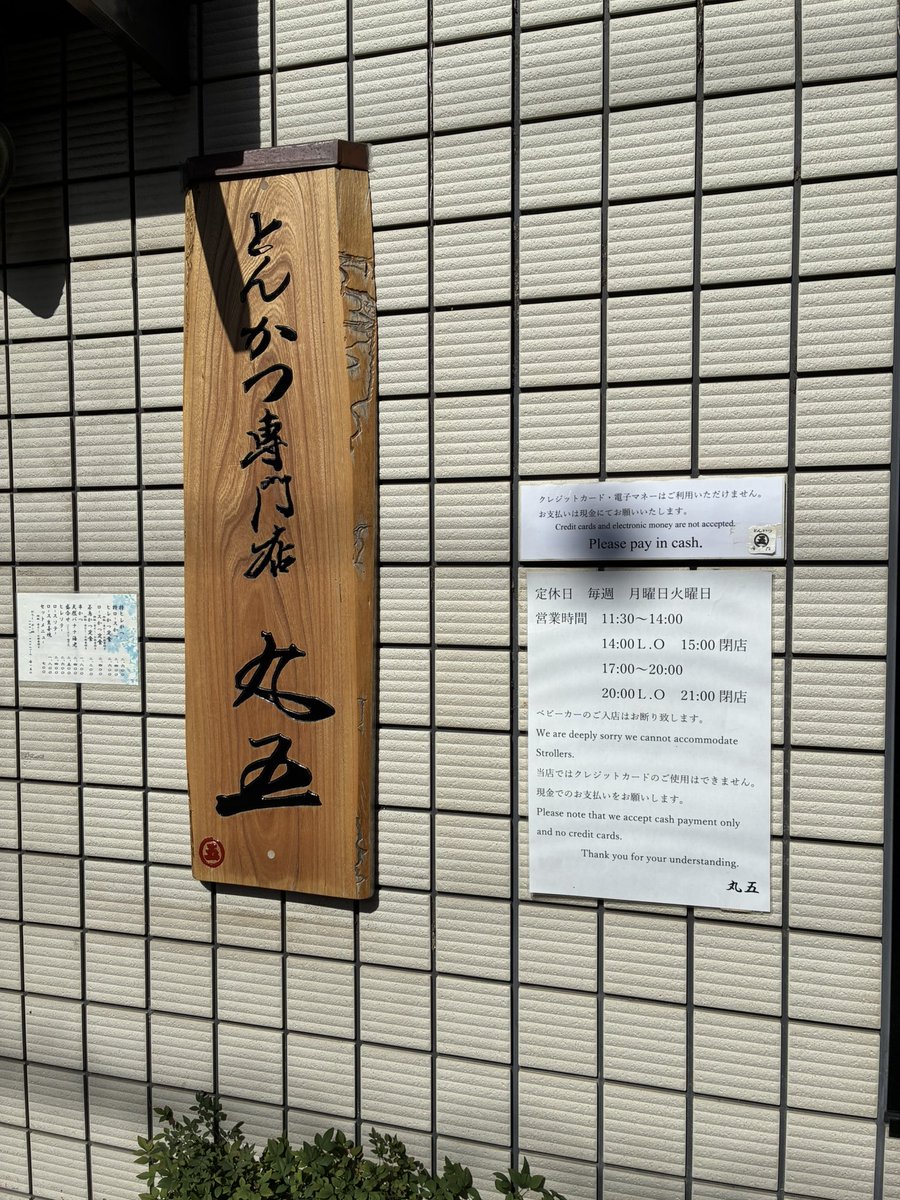 とんかつ専門店 丸五
クレジットカード・電子マネーはご利用いただけません。
お支払いは現金にてお願いいたします。
Credit cards and electronic money are not accepted.
Please pay in cash.
定休日 毎週 月曜日火曜日
営業時間 11:30～14:00
14:00L.O 15:00閉店
17:00～20:00
20:00L.O 21:00閉店
ベビーカーのご入店はお断り致します。
We are deeply sorry we cannot accommodate
Strollers.
当店ではクレジットカードのご使用はできません。
現金でのお支払いをお願いします。
Please note that we accept cash payment only
and no credit cards.
Thank you for your understanding.
丸五